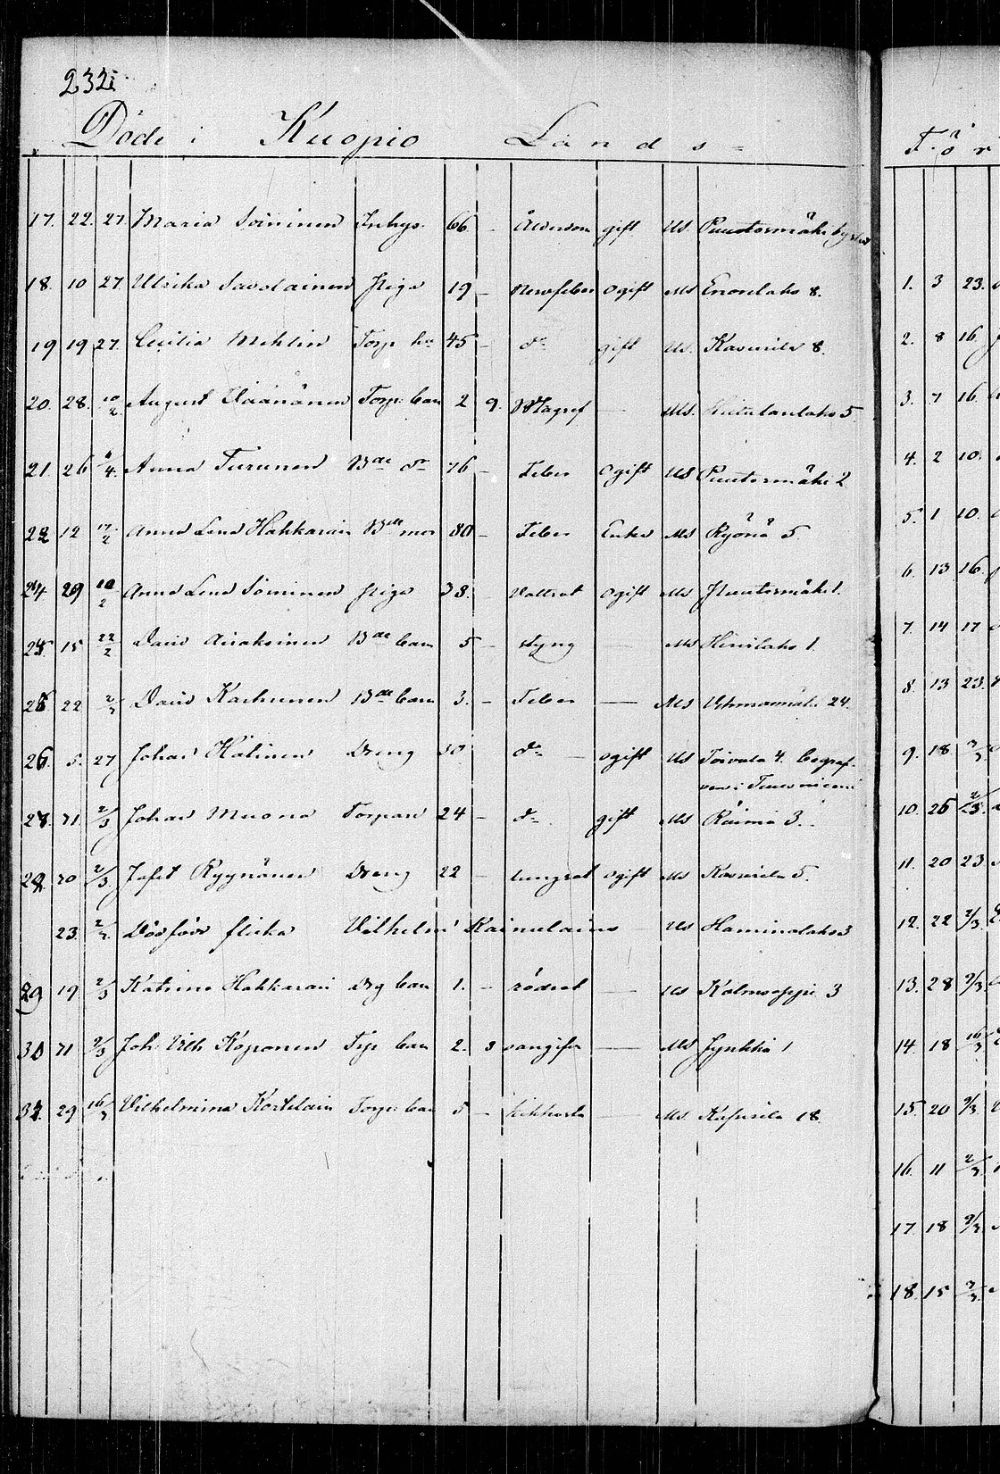 232
Döde i Kuopio Lands=
För
17. 22. 27. Maria Soininen Inhys. 66 - Ålderdom gift Ms Puutosmäki
18. 10 27 Ulrika Savolainen Piga 19 - Nervfeber ogift Ms Enonlaks 8.
19 19 27. Cecilia Mehlin Torp. hu 45 - do gift Ms. Kasurila 8.
20. 28. 10/2 August Väänänen Torp: barn 2 9. Ms. 5
21. 26 4. Anna Turunen Bde dr 76 - Feber Ogift Ms Puutosmäki 2
22 12 17/2 Anna Lena Hakkarain Bde mor 80 - Feber Enka Ms Ryönä 5
24 29 10/2 Anna Lena Soininen Piga 38. - Vattsot ogift Ms Puutosmäki 1.
25 15 22/2 David Airaksinen Bde barn 5 - styng — Ms Hirvilaks 1.
26 22 2/3 David Karhunen Bde barn 3. - Feber — Ms Vehmasmäki 24.
26. 5. 27 Johan Hätinen Dreng 30 do ogift Ms Toivala 4. begraf-
ven i
28. 21. 2/3 Johan Muona Torpare 24 - do gift Ms Räimä 3.
28 20 2/3 Jafet Ryynänen Dreng 22 - lungsot ogift Ms Kasurila 5.
23. 2/3 Dödfödd flicka Vilhelm Kainulainens Ms Haminalaks 3
29 19 2/3 Katrina Hakkarain Drg barn 1. - rödsot — Ms Kolmisoppi 3
30 21 2/3 Joh: Vilh Koponen Trp barn 2. 3 — Ms Jynkkä 1
31. 29 16/3 Vilhelmina Kortelain Torp: bar 5 - kikhosta — Ms Kasurila 18.
1. 3 23.
2. 8 16.
3. 7 16.
4. 2 10.
5. 1 10.
6. 13 16.
7. 14 17
8. 13 23.
9. 18
10. 26 23.
11. 20 23.
12. 22 2/3.
13. 28 2/3.
14. 18 16/3
15. 20 2/3
16. 11 2/3
17. 18 2/3.
18. 15 2/3